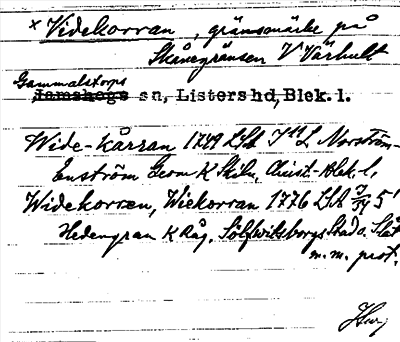 × Videkorran, gränsmärke på
Skånegränsen V Värhult
Gammalstorps
Jämshögs sn, Listers hd, Blek. l.
Wide-kårran 1749 LSA J11 L Norström-
Enström Geom K Skiln, Christ.-Blek. l,
Widekorren, Wiekorran 1776 LSA 5
Hedengran K Råg. Sölfwitsborgs Stad o. Slåt
m.m. prot.